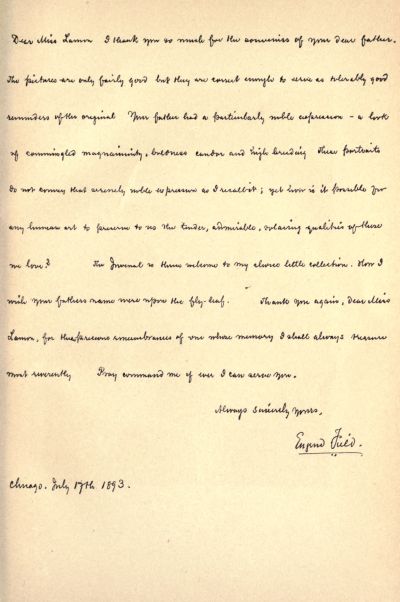 Dear Miss Lamon I thank you so much for the souvenirs of your dear father.
The pictures are only fairly good but they are correct enough to serve as tolerably good
reminders of the original Your father had a particularly noble expression - a look
of commingled magnanimity, boldness candor and high breeding These portraits
do not convey that serenely noble expression as I recall it; yet how is it possible for
any human art to preserve to us the tender, admirable, solacing qualities of those
we love? The Journal is thrice welcome to my choice little collection. How I
wish your father's name were upon the fly-leaf. Thank you again, dear Miss
Lamon, for the precious remembrances of one whose memory I shall always treasure
most reverently Pray command me if ever I can serve you.
Always sincerely yours,
Eugene Field.
Chicago. July 17th 1893.